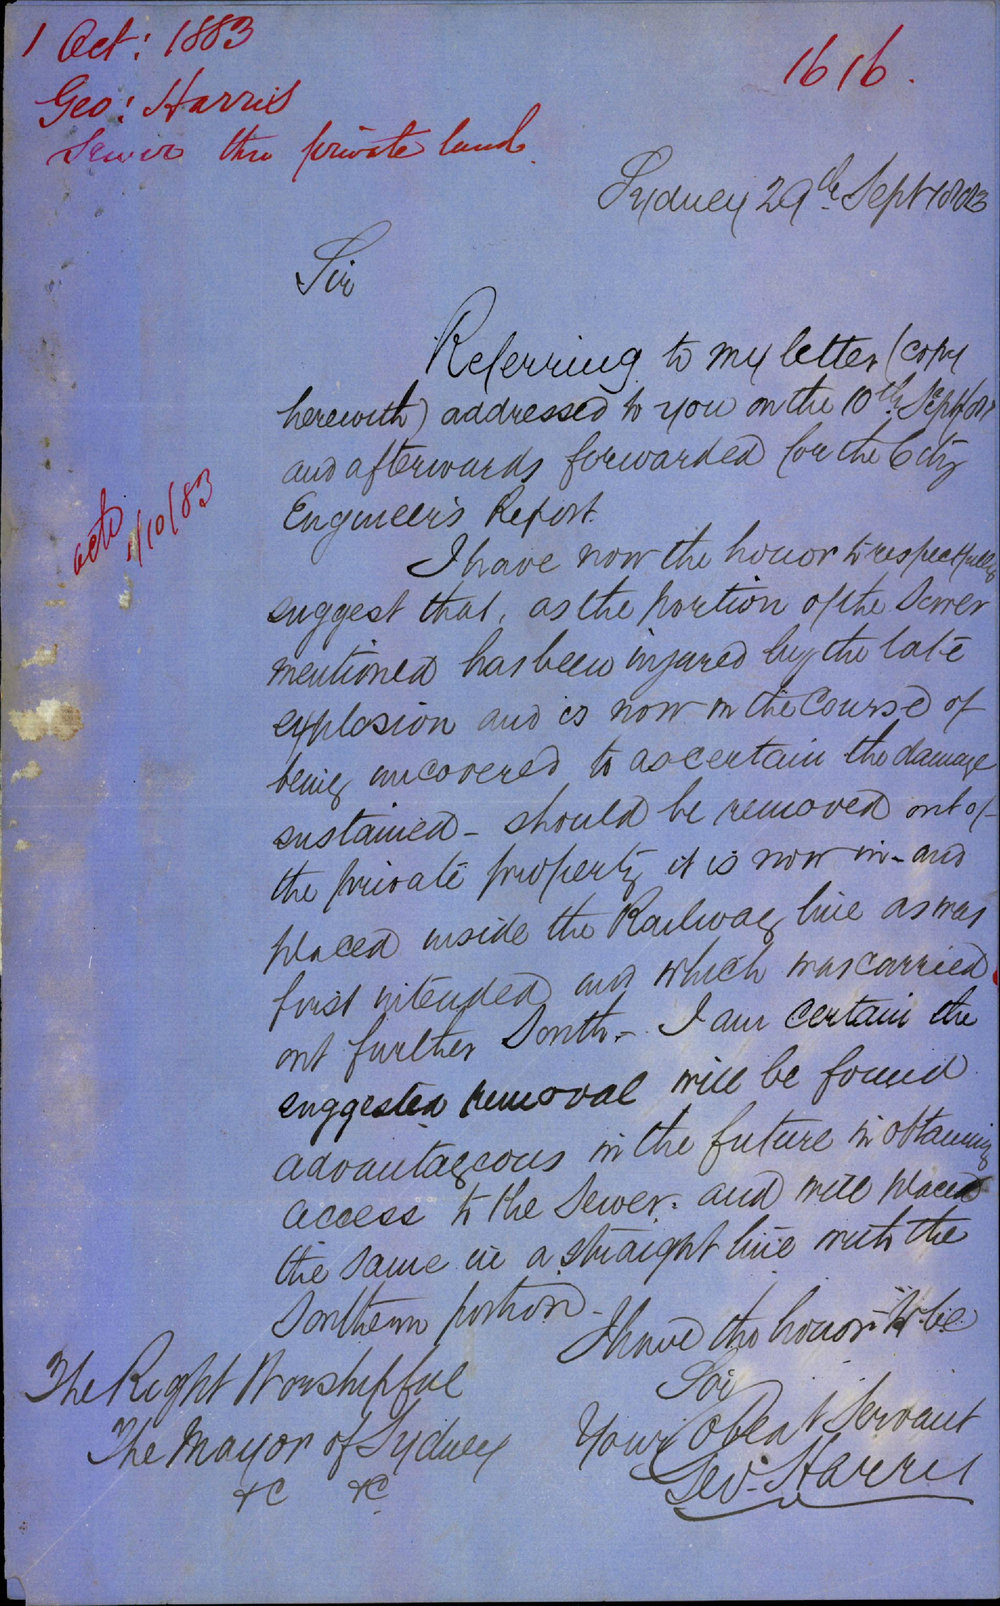 1 Oct: 1883
Geo: Harris
Sewer thro private land.
1616.
Sydney 29th Sept 1883
Sir
Referring to my letter (copy
herewith) addressed to you on the 10th Sept
and afterwards forwarded for the City
Engineer's Report.
I have now the honor to respectfully
suggest that, as the portion of the Sewer
mentioned has been injured by the late
explosion and is now in the course of
being uncovered to ascertain the damage
sustained - should be removed out of
the private property it is now in - and
placed inside the Railway line as was
first intended and which was carried
out further South. - I am certain the
suggested removal will be found
advantageous in the future in obtaining
access to the Sewer. and will placed
the same in a straight line with the
Southern portion -
I have the honor to be.
Sir
Your Obedt Servant
Geo. Harris
The Right Worshipful
The Mayor of Sydney
&C &C
1/10/83